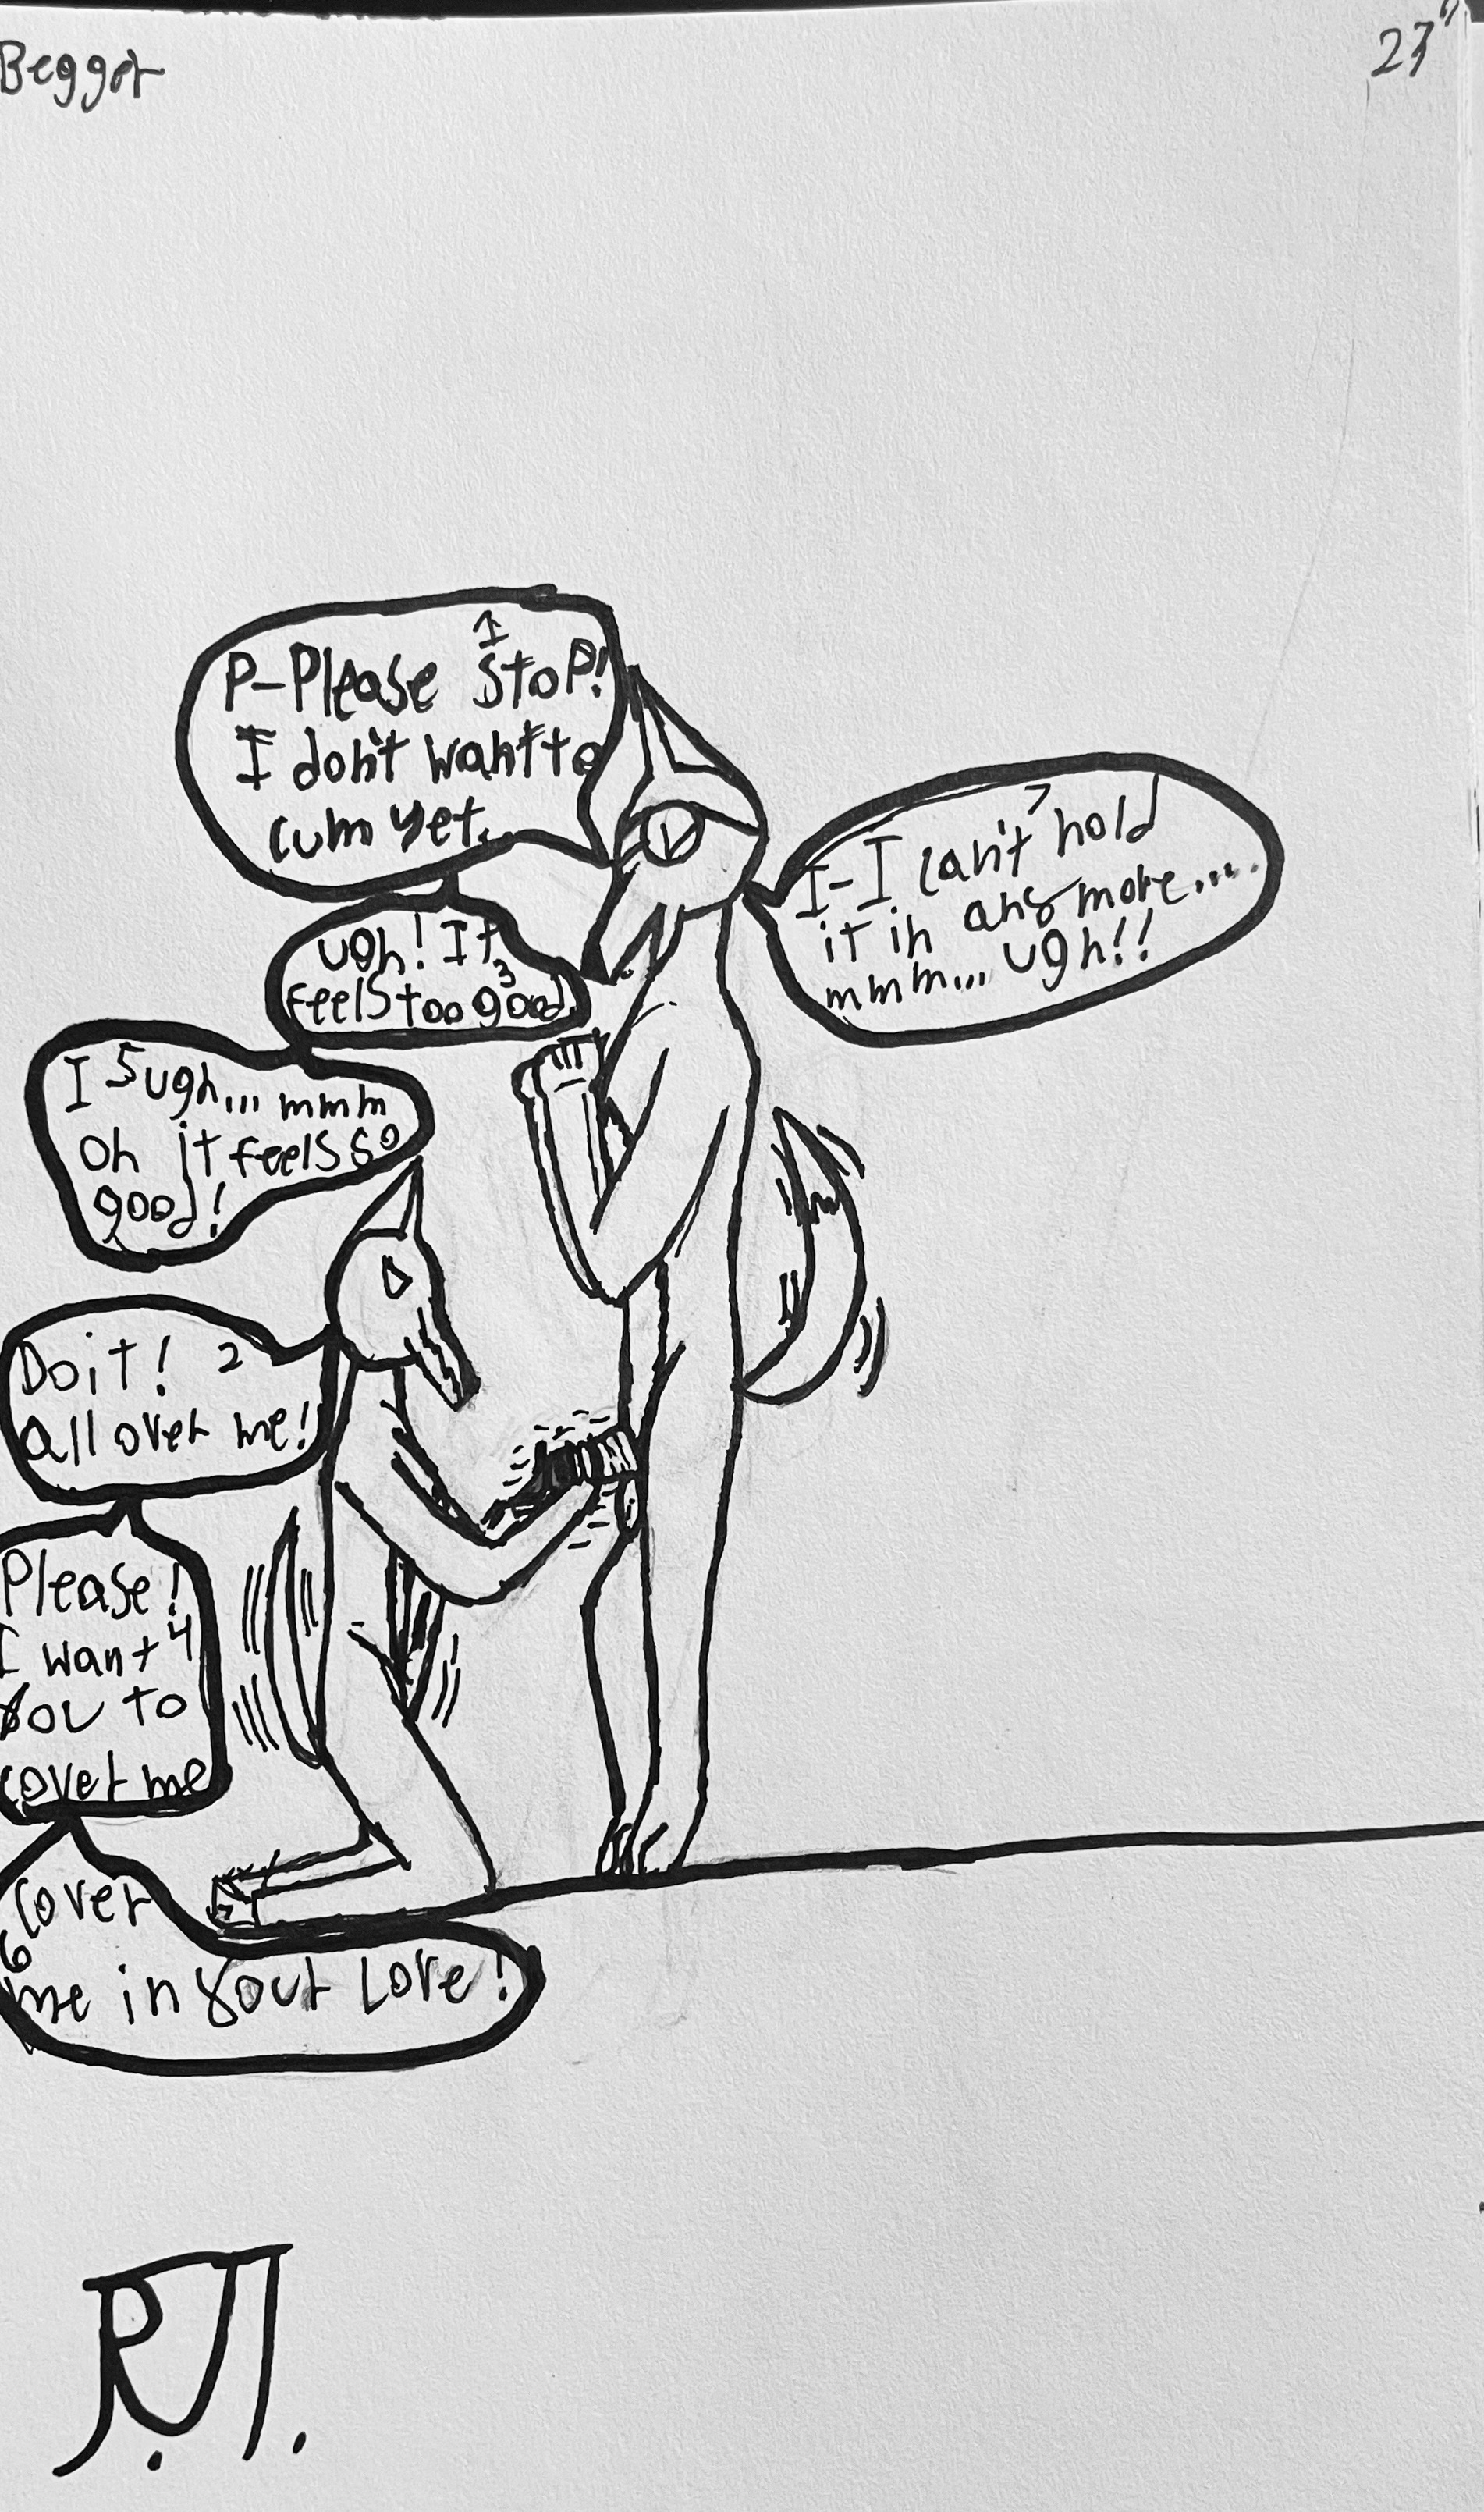 Begger
27"
1
P-Please Stop!
I don't want to
cum yet.
Doit! 2
all over me!
ugh! It
3
feels too good.
Please!
I want 4
you to
cover me
I 5 ugh... mmm
Oh it feels so
good!
cover
6
me in your Love!
7
I-I can't hold
it in any more....
mmm... ugh!!
RJJ.